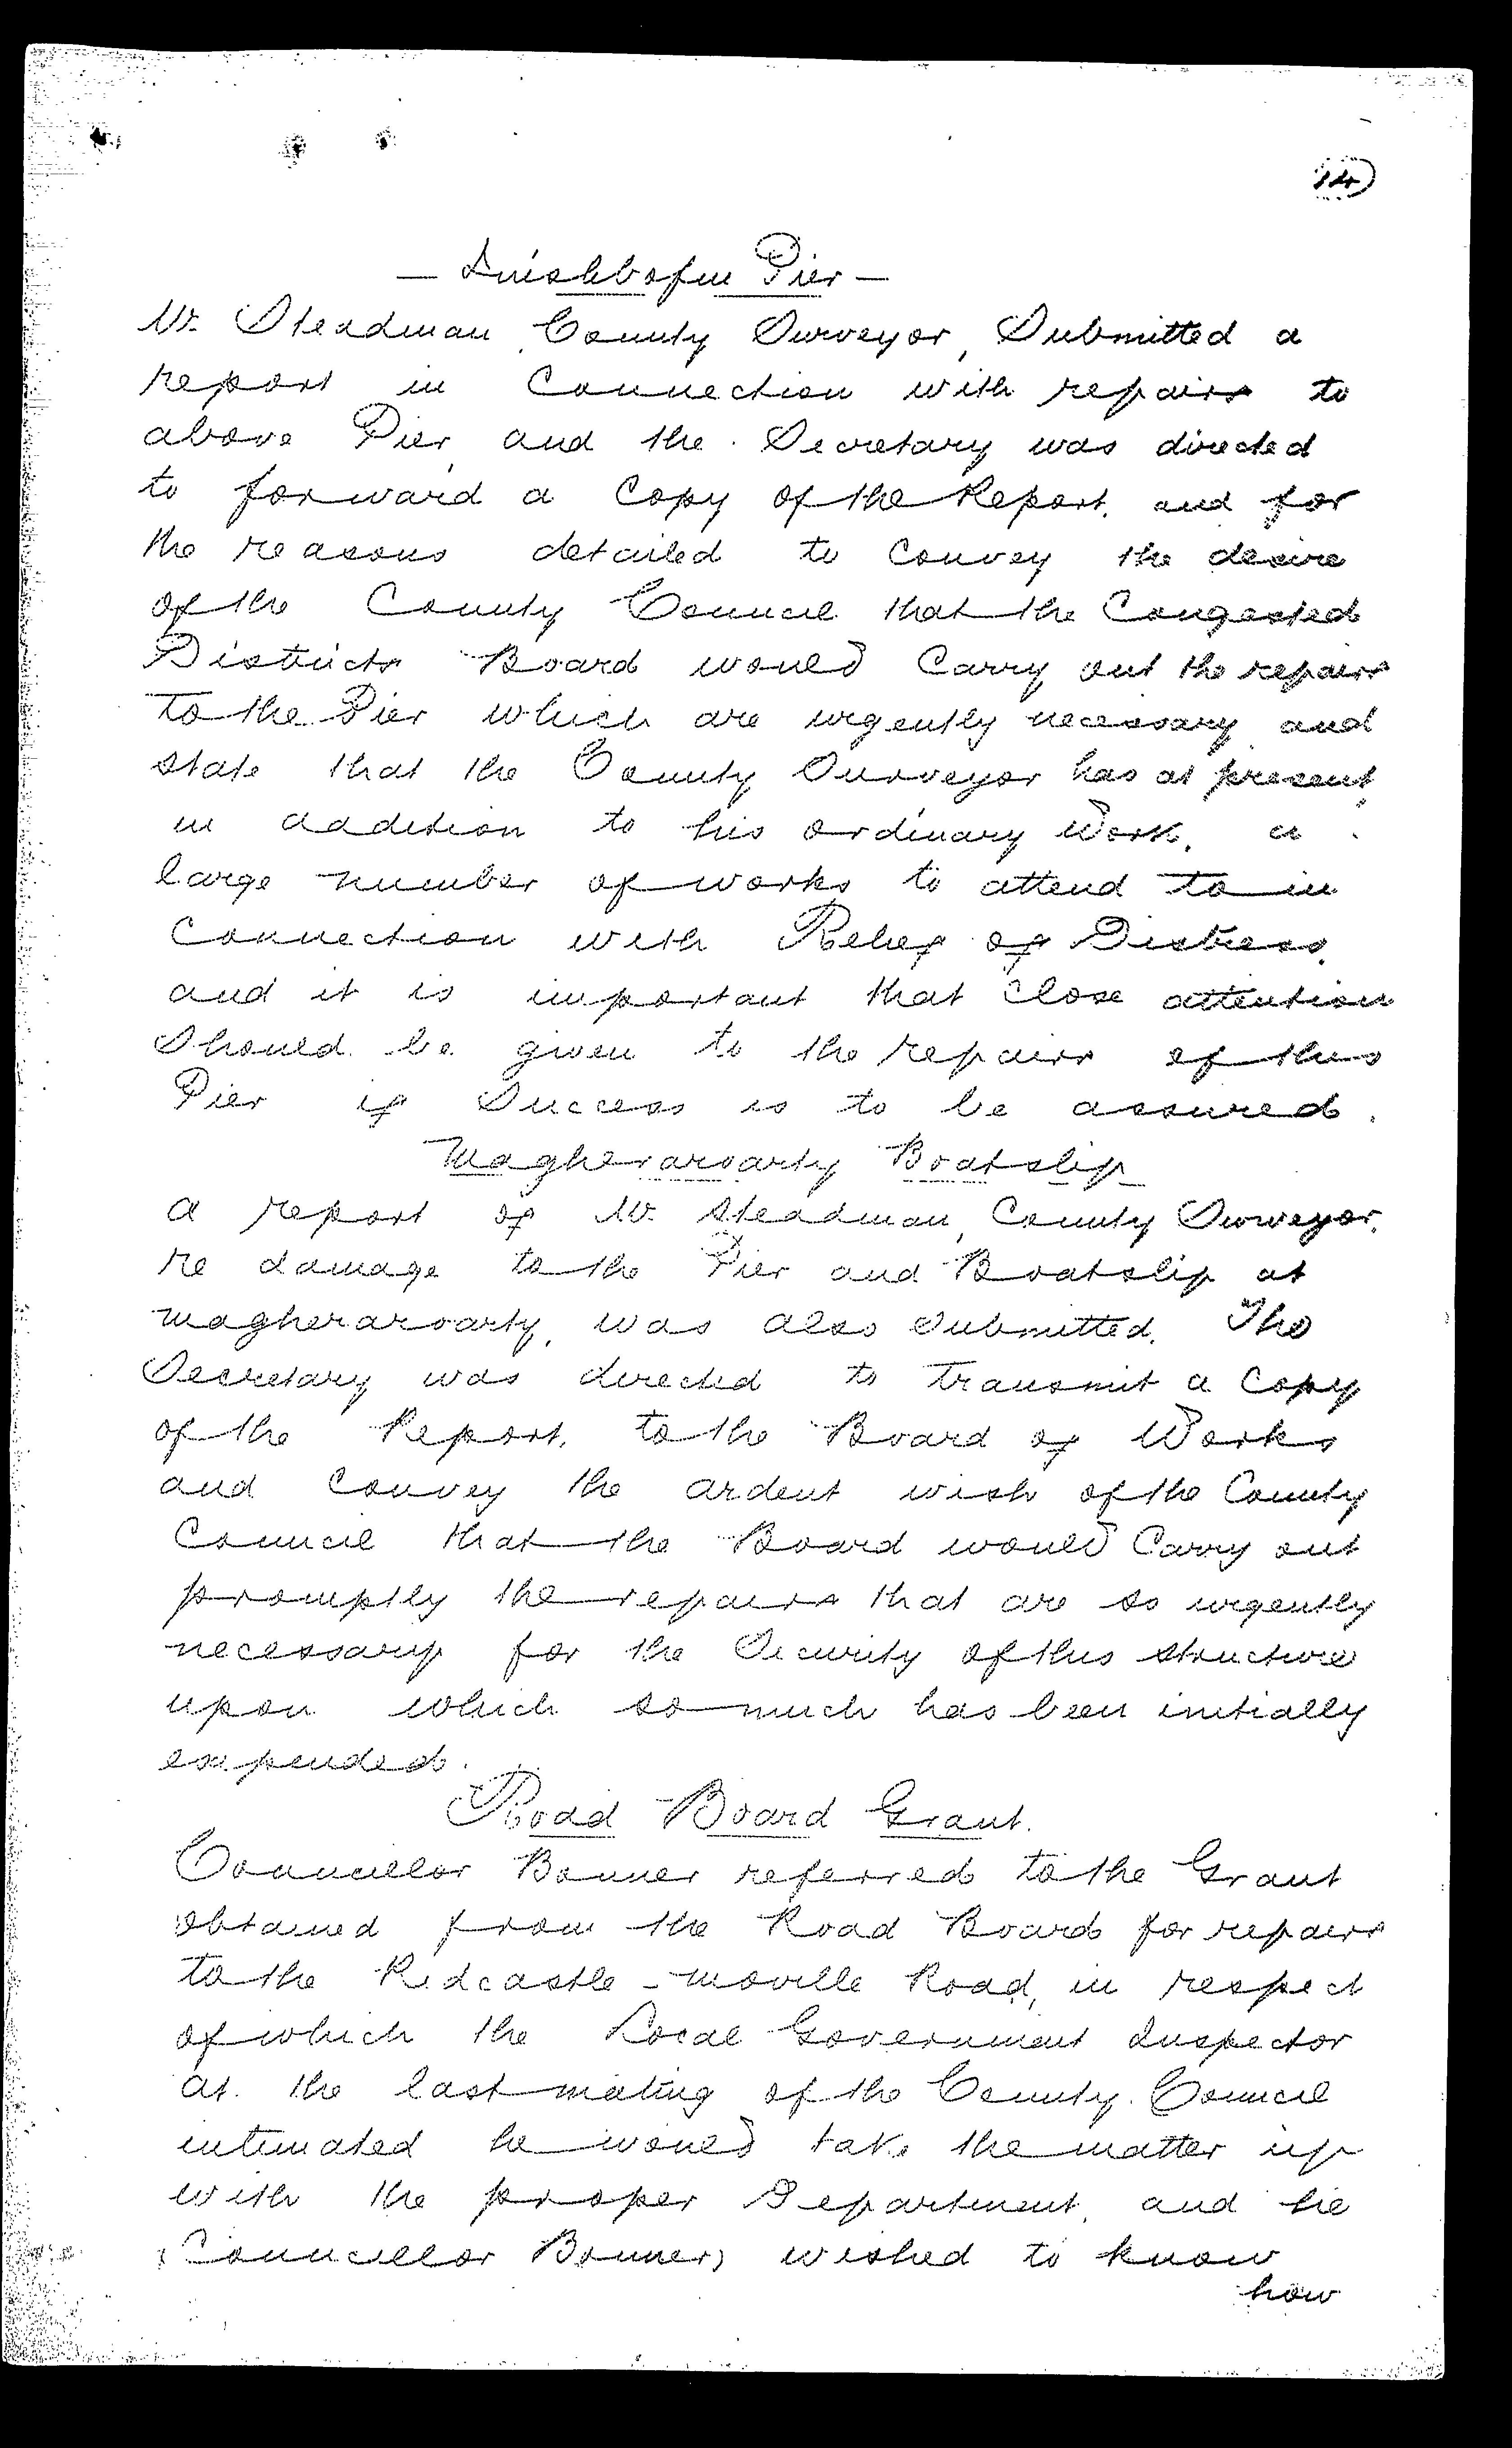 — Inishbofin Pier —
Mr. Steadman, County Surveyor, Submitted a
report in Connection with repairs to
above Pier, and the Secretary was directed
to forward a Copy of the Report, and for
the reasons detailed to Convey the desire
of the County Council that the Congested
Districts Board would Carry out the repairs
to the Pier which are urgently necessary and
state that the County Surveyor has at present,
in addition to his ordinary Work, a
large number of works to attend to in
Connection with Relief of Distress,
and it is important that close attention
Should be given to the repairs of this
Pier if Success is to be assured.
Magheraroarty Boatslip
A report of Mr. Steadman, County Surveyor,
re damage to the Pier and Boatslip at
Magheraroarty, was also submitted. The
Secretary was directed to transmit a Copy
of the Report, to the Board of Works
and Convey the ardent wish of the County
Council that the Board would Carry out
promptly the repairs that are so urgently
necessary for the Security of this structure
upon which so much has been initially
expended.
Road Board Grant.
Councillor Bonner referred to the Grant
obtained from the Road Board for repairs
to the Redcastle - Moville Road, in respect
of which the Local Government Inspector
at the last meeting of the County Council
intimated he would take the matter up
with the proper Department, and he
(Councillor Bonner) wished to know
how